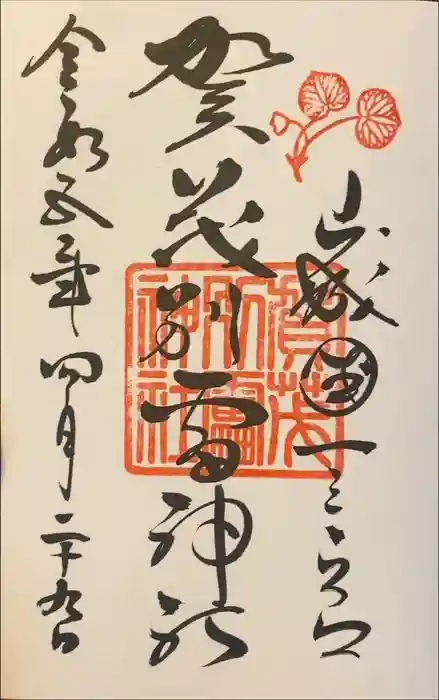 山城國一之宮
賀茂別雷神社
令和五年四月二十九日
賀茂
別雷
神社